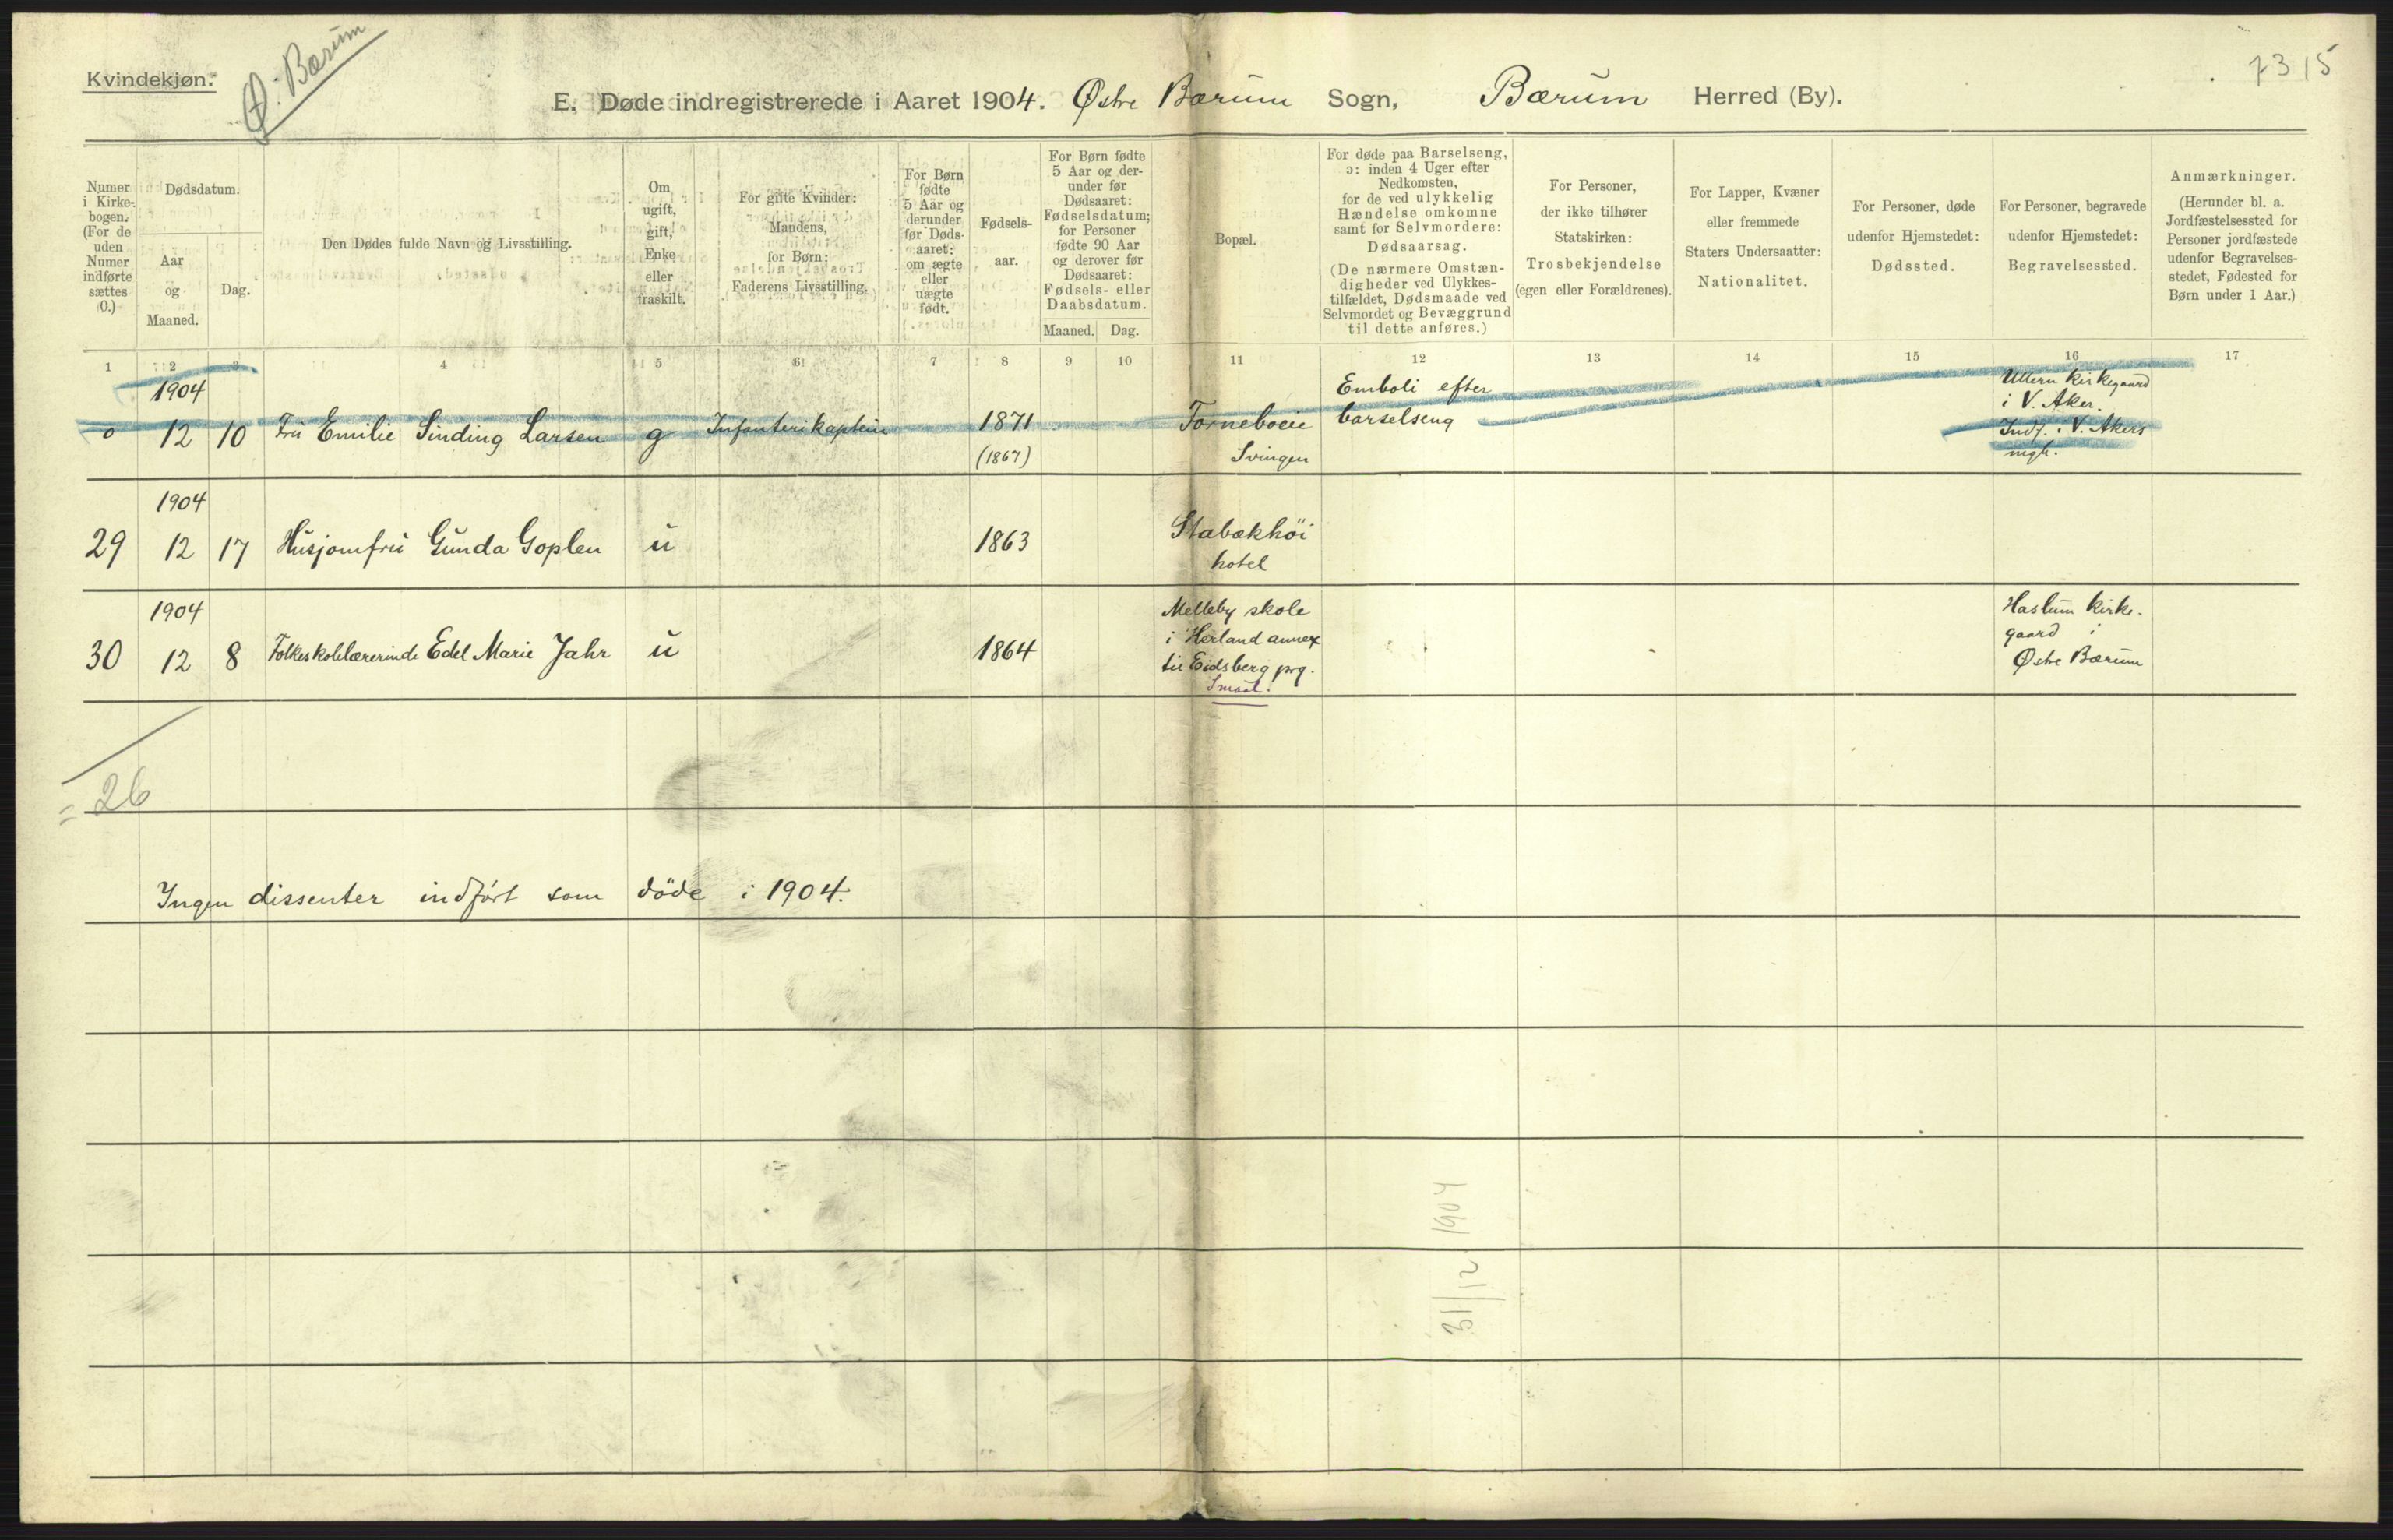 Kvindekjøn.
Ø. Bærum
E. Døde indregistrerede i Aaret 1904. Østre Bærum Sogn, Bærum Herred (By).
7315
Numer i Kirkebogen. (For de uden Numer indførte sættes 0.)
Dødsdatum.
Aar og Maaned.
Dag.
Den Dødes fulde Navn og Livsstilling.
Om ugift, gift, Enke eller fraskilt.
For gifte Kvinder: Mandens, for Børn: Faderens Livsstilling.
For Børn fødte 5 Aar og derunder før Dødsaaret: om ægte eller uægte født.
Fødselsaar.
For Børn fødte 5 Aar og derunder før Dødsaaret: Fødselsdatum; for Personer fødte 90 Aar og derover før Dødsaaret: Fødsels- eller Daabsdatum.
Maaned. Dag.
Bopæl.
For døde paa Barselseng, ɔ: inden 4 Uger efter Nedkomsten, for de ved ulykkelig Hændelse omkomne samt for Selvmordere: Dødsaarsag.
(De nærmere Omstændigheder ved Ulykkestilfældet, Dødsmaade ved Selvmordet og Bevæggrund til dette anføres.)
For Personer, der ikke tilhører Statskirken: Trosbekjendelse (egen eller Forældrenes).
For Lapper, Kvæner eller fremmede Staters Undersaatter: Nationalitet.
For Personer, døde udenfor Hjemstedet: Dødssted.
For Personer, begravede udenfor Hjemstedet: Begravelsessted.
Anmærkninger. (Herunder bl. a. Jordfæstelsessted for Personer jordfæstede udenfor Begravelsesstedet, Fødested for Børn under 1 Aar.)
1 2 3 4 5 6 7 8 9 10 11 12 13 14 15 16 17
1904
0 12 10 Fru Emilie Sinding Larsen g Infanterikaptein 1871
(1867)
Forneboveie
Svingen
Emboli efter
barselseng
Ullern kirkegaard
i V. Aker.
Indf. i V. Akers
mgh.
1904
29 12 17 Husjomfru Gunda Goplen u 1863
Stabækhöi
hotel
1904
30 12 8 Folkeskolelærerinde Edel Marie Jahr u 1864
Melleby skole
i Herland annex
til Eidsberg prg.
Smaal.
Haslum kirke-
gaard i
Østre Bærum
= 26
Ingen dissenter indført som döde i 1904.
31/12 1904